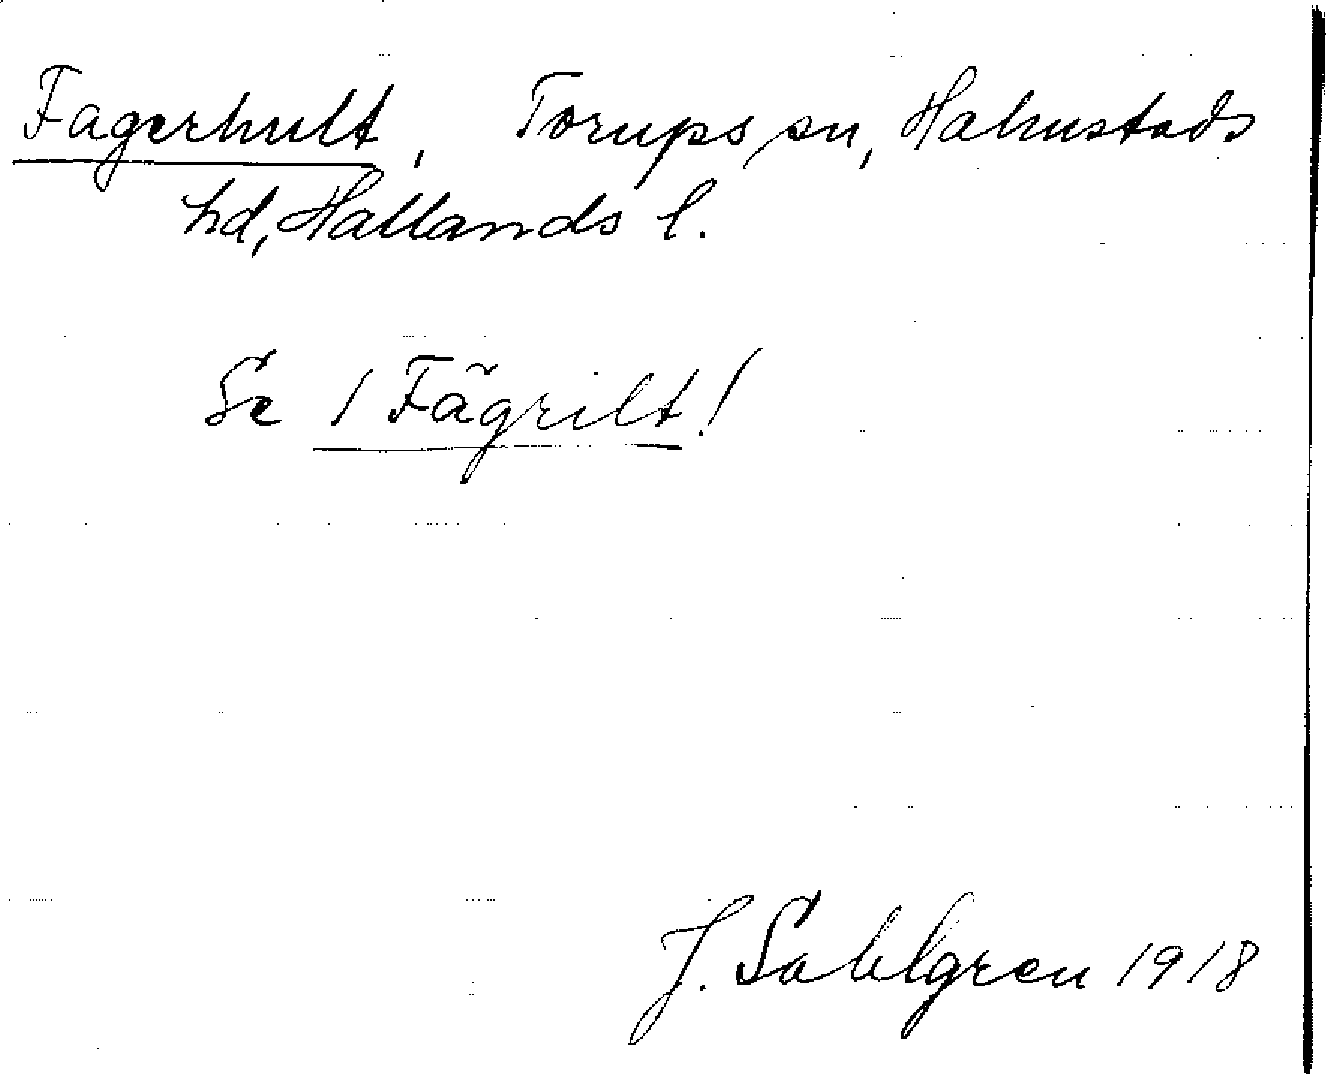 Fagerhult, Torups sn, Halmstads
hd, Hallands l.
Se 1 Fãgrilt!
J. Sahlgren 1918